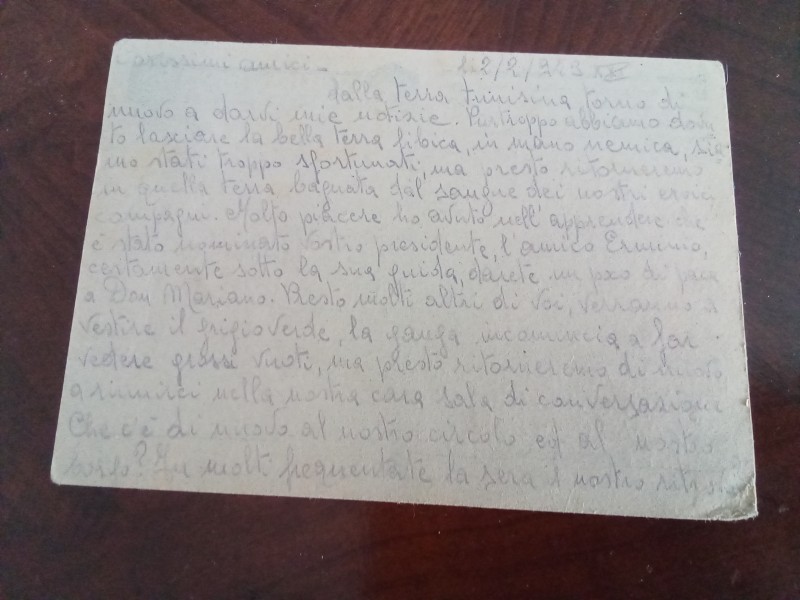 Carissimi amici - 12/2/943 XXI
dalla terra tunisina torno di
nuovo a darvi mie notizie. Purtroppo abbiamo dovu-
to lasciare la bella terra libica, in mano nemica, sia-
mo stati troppo sfortunati, ma presto ritorneremo
in quella terra bagnata dal sangue dei nostri eroici
compagni. Molto piacere ho avuto nell'apprendere che
è stato nominato vostro presidente, l'amico Erminio,
certamente sotto la sua guida, darete un pxo di
a Don Mariano. Presto molti altri di voi, verranno a
vestire il grigioverde, la ganga incomincia a far
vedere grossi vuoti, ma presto ritorneremo di nuovo
a riunirci nella nostra cara sala di conversazione
Che c'è di nuovo al nostro circolo ed al nostro
? In molti frequentate la sera il nostro